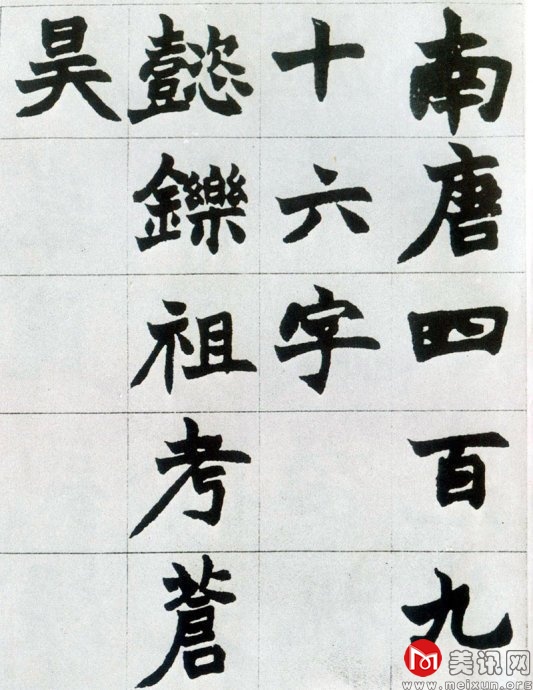 南唐四百九
十六字
懿鑠祖考蒼
昊
M 美讯网
www.meixun.org